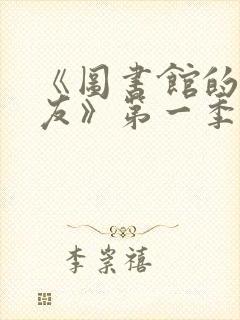 《圖書館的
友》第一季
李崇禧